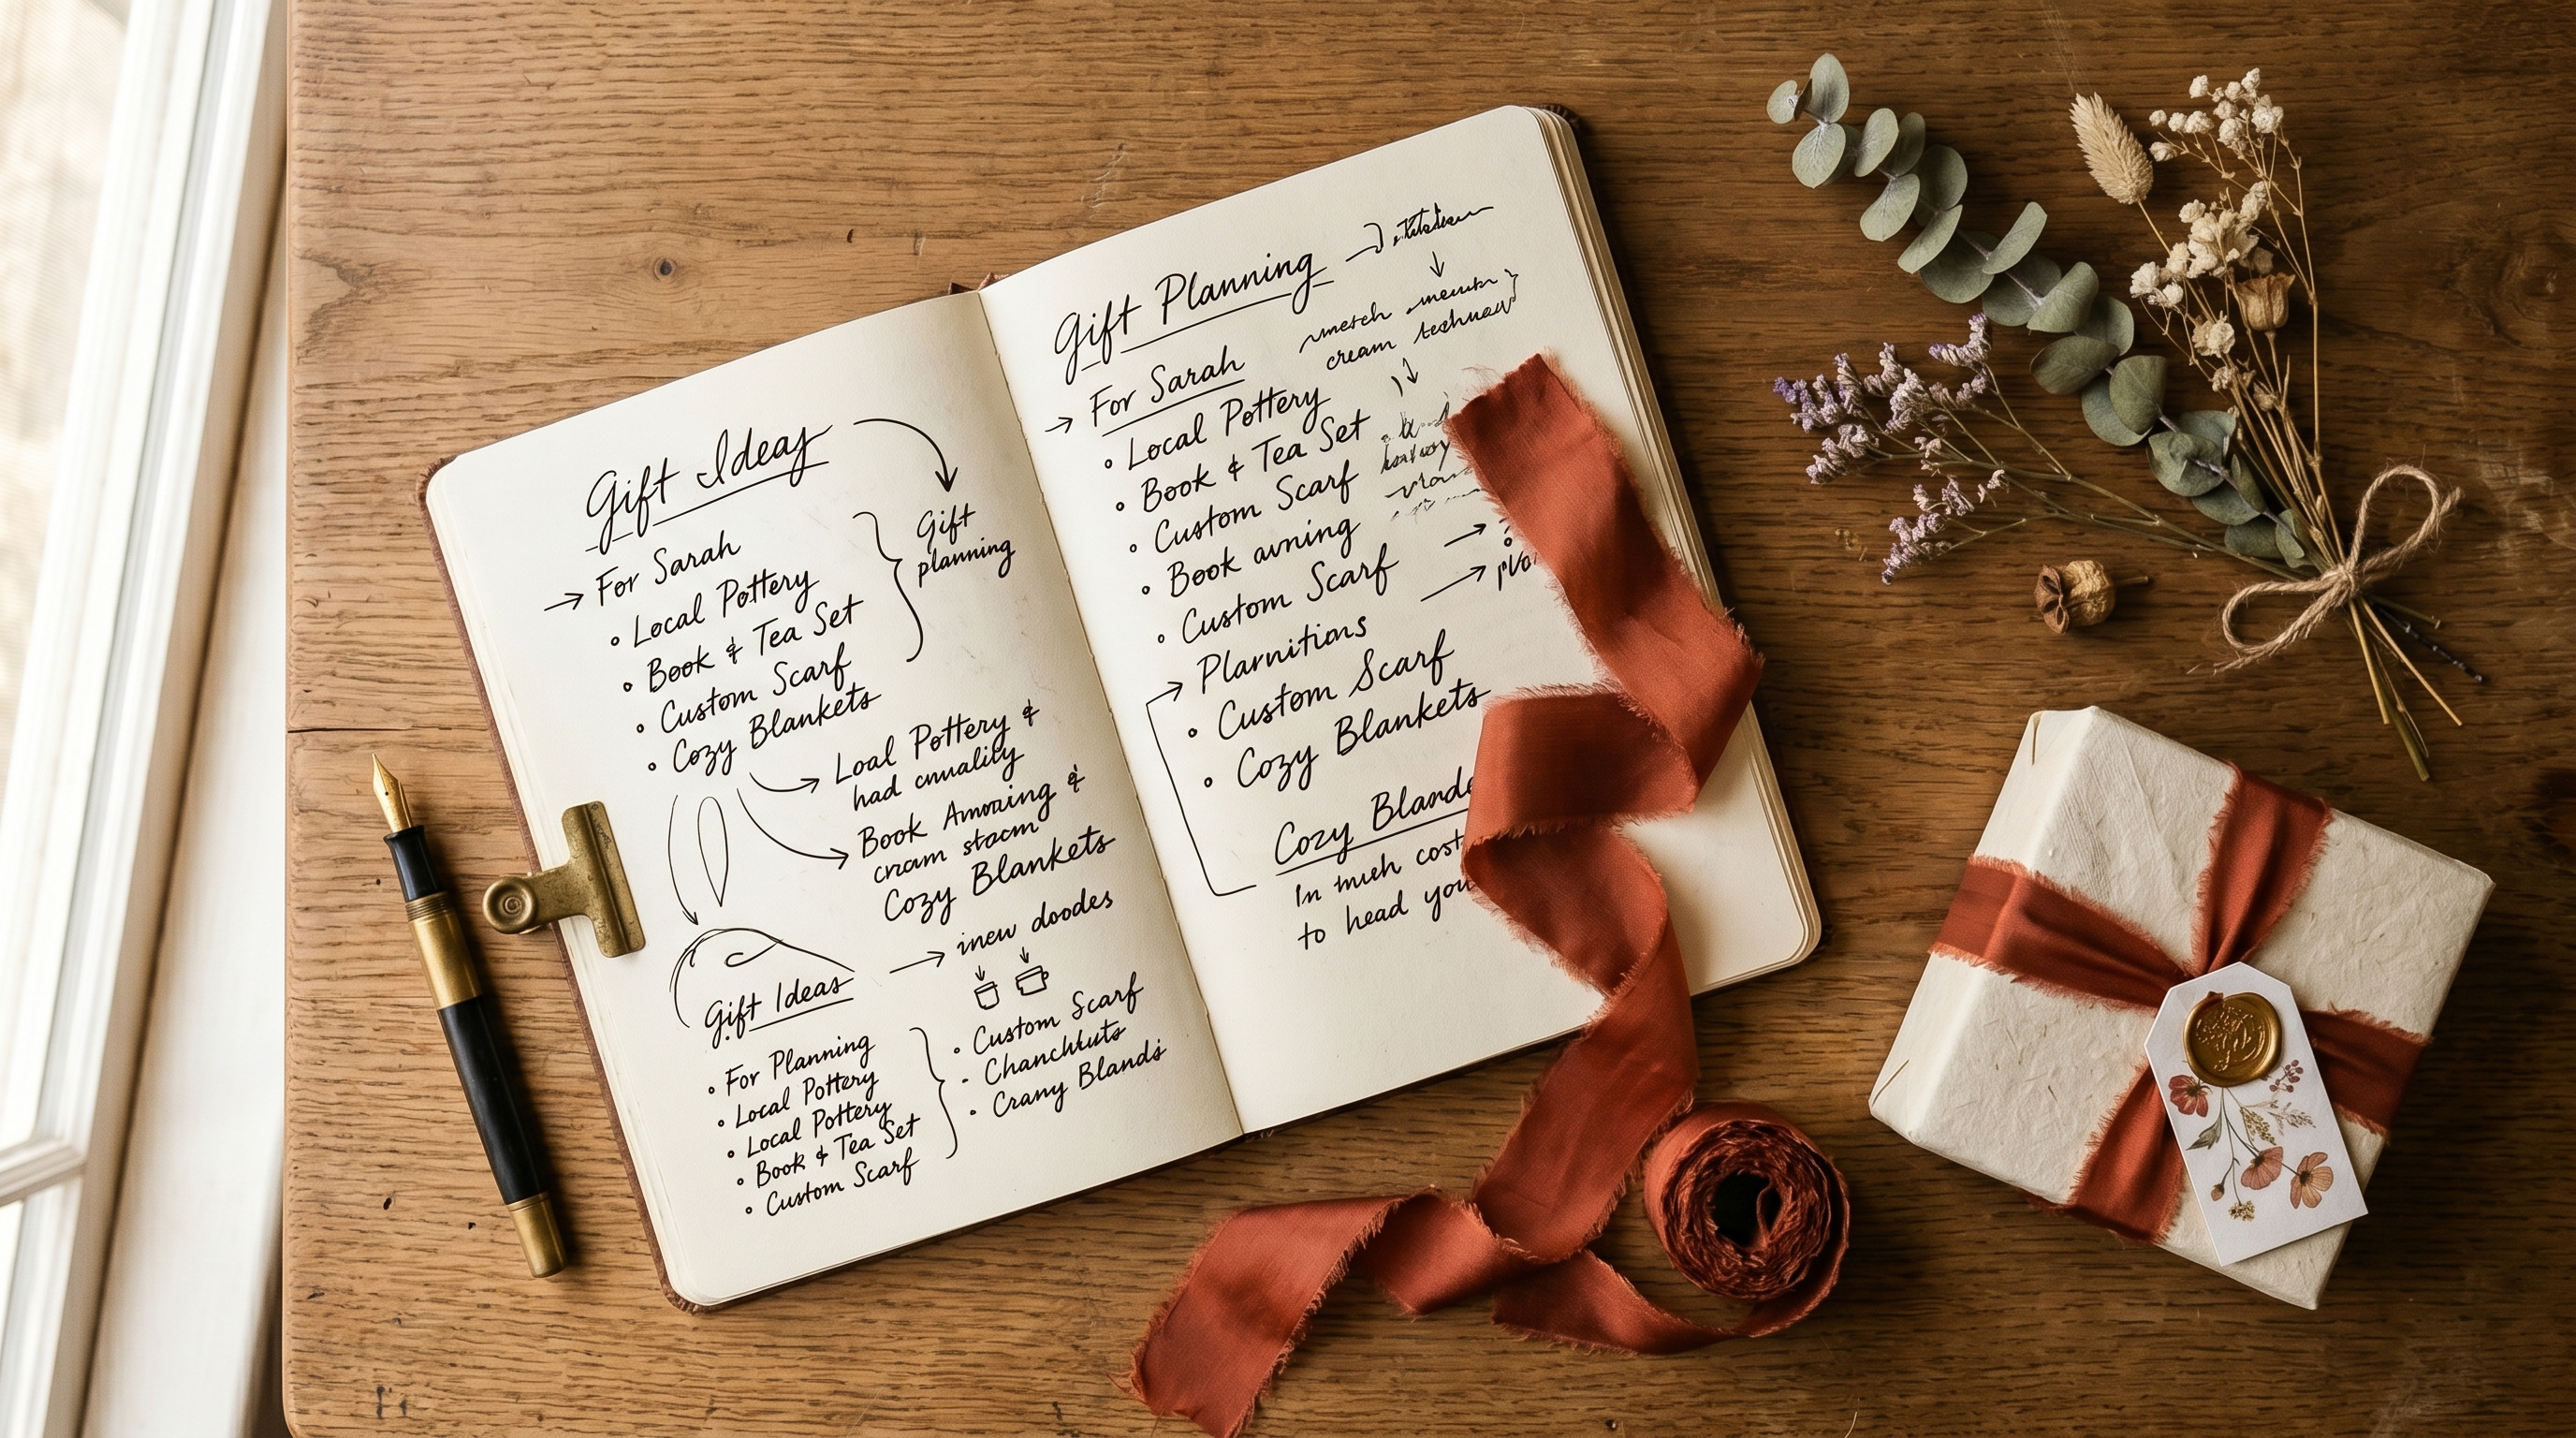 Gift Ideas
→ For Sarah
• Local Pottery
• Book & Tea Set
• Custom Scarf
• Cozy Blankets
Gift
planning
→ Loal Pottery &
had cnuality
→ Book Amoring &
cream stacm
Cozy Blankets
Gift Ideas
→ inew doodes
• For Planning
• Local Pottery
• Local Pottery
• Book & Tea Set
• Custom Scarf
• Custom Scarf
- Chanchkuts
• Crany Blands
Gift Planning
→ For Sarah
cream
• Local Pottery
• Book & Tea Set
• Custom Scarf
• Book avning
• Custom Scarf
→ Plarnitions
• Custom Scarf
• Cozy Blankets
Cozy Blande
In much cost
to head you